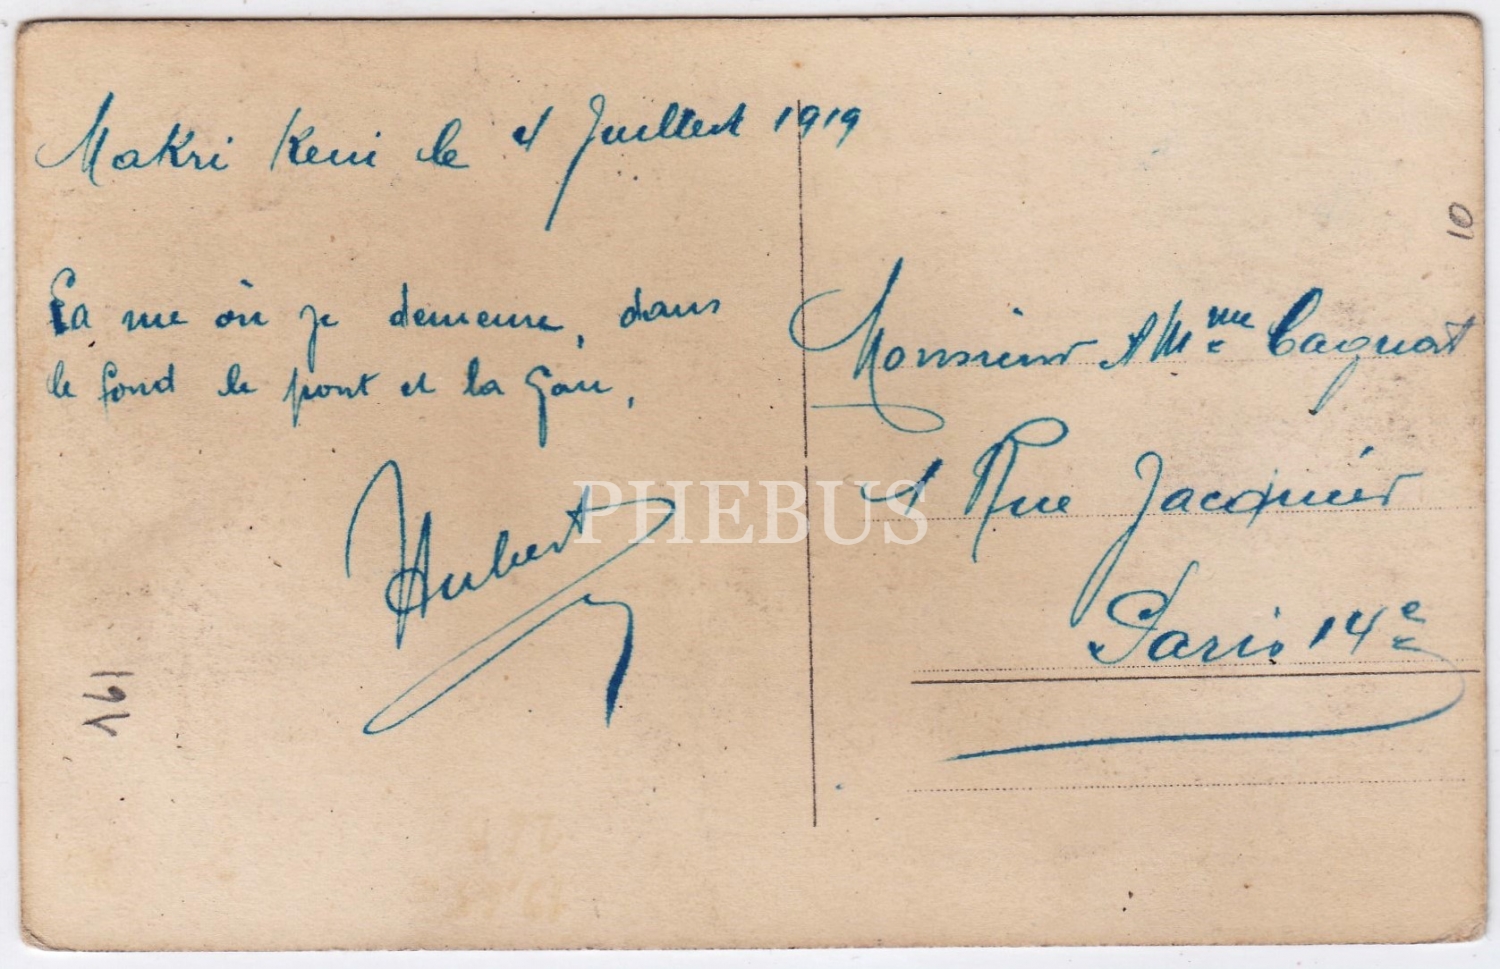 Makri Keui le 4 Juillet 1919
La rue où je demeure, dans
le fond le pont et la Gare,
Hubert
Monsieur & Mme Cagnat
1 Rue Jacquier
Paris 14e
PHEBUS
10